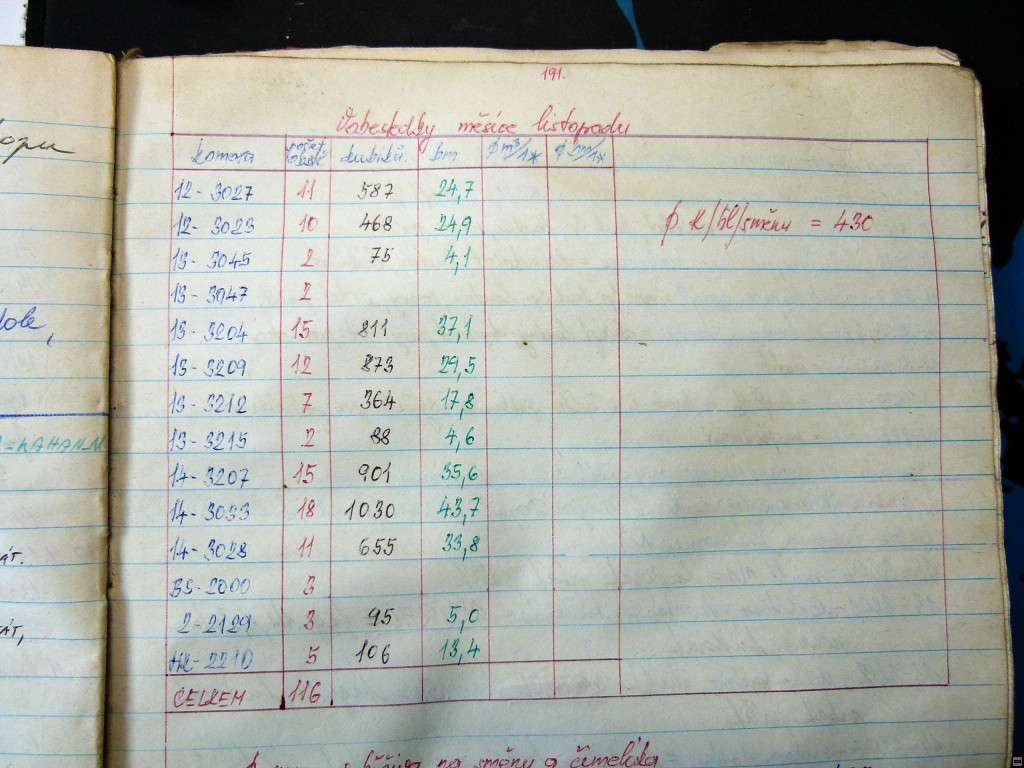 191.
měsíce listopadu
komora počet kubíků. bm ϕ m³/1* ϕ bm/1*
12-3027 11 587 24,7
12-3023 10 468 24,9
ϕ k/hl/směnu = 430
13-3045 2 75 4,1
13-3047 2
13-3204 15 811 37,1
13-3209 12 873 29,5
13-3212 7 364 17,8
13-3215 2 88 4,6
14-3207 15 901 35,6
14-3033 18 1030 43,7
14-3028 11 655 33,8
BS-2000 3
2-2129 3 95 5,0
2210 5 106 13,4
CELKEM 116
na směny a čimelíka
-KAHAN
ÁT.
ÁT,